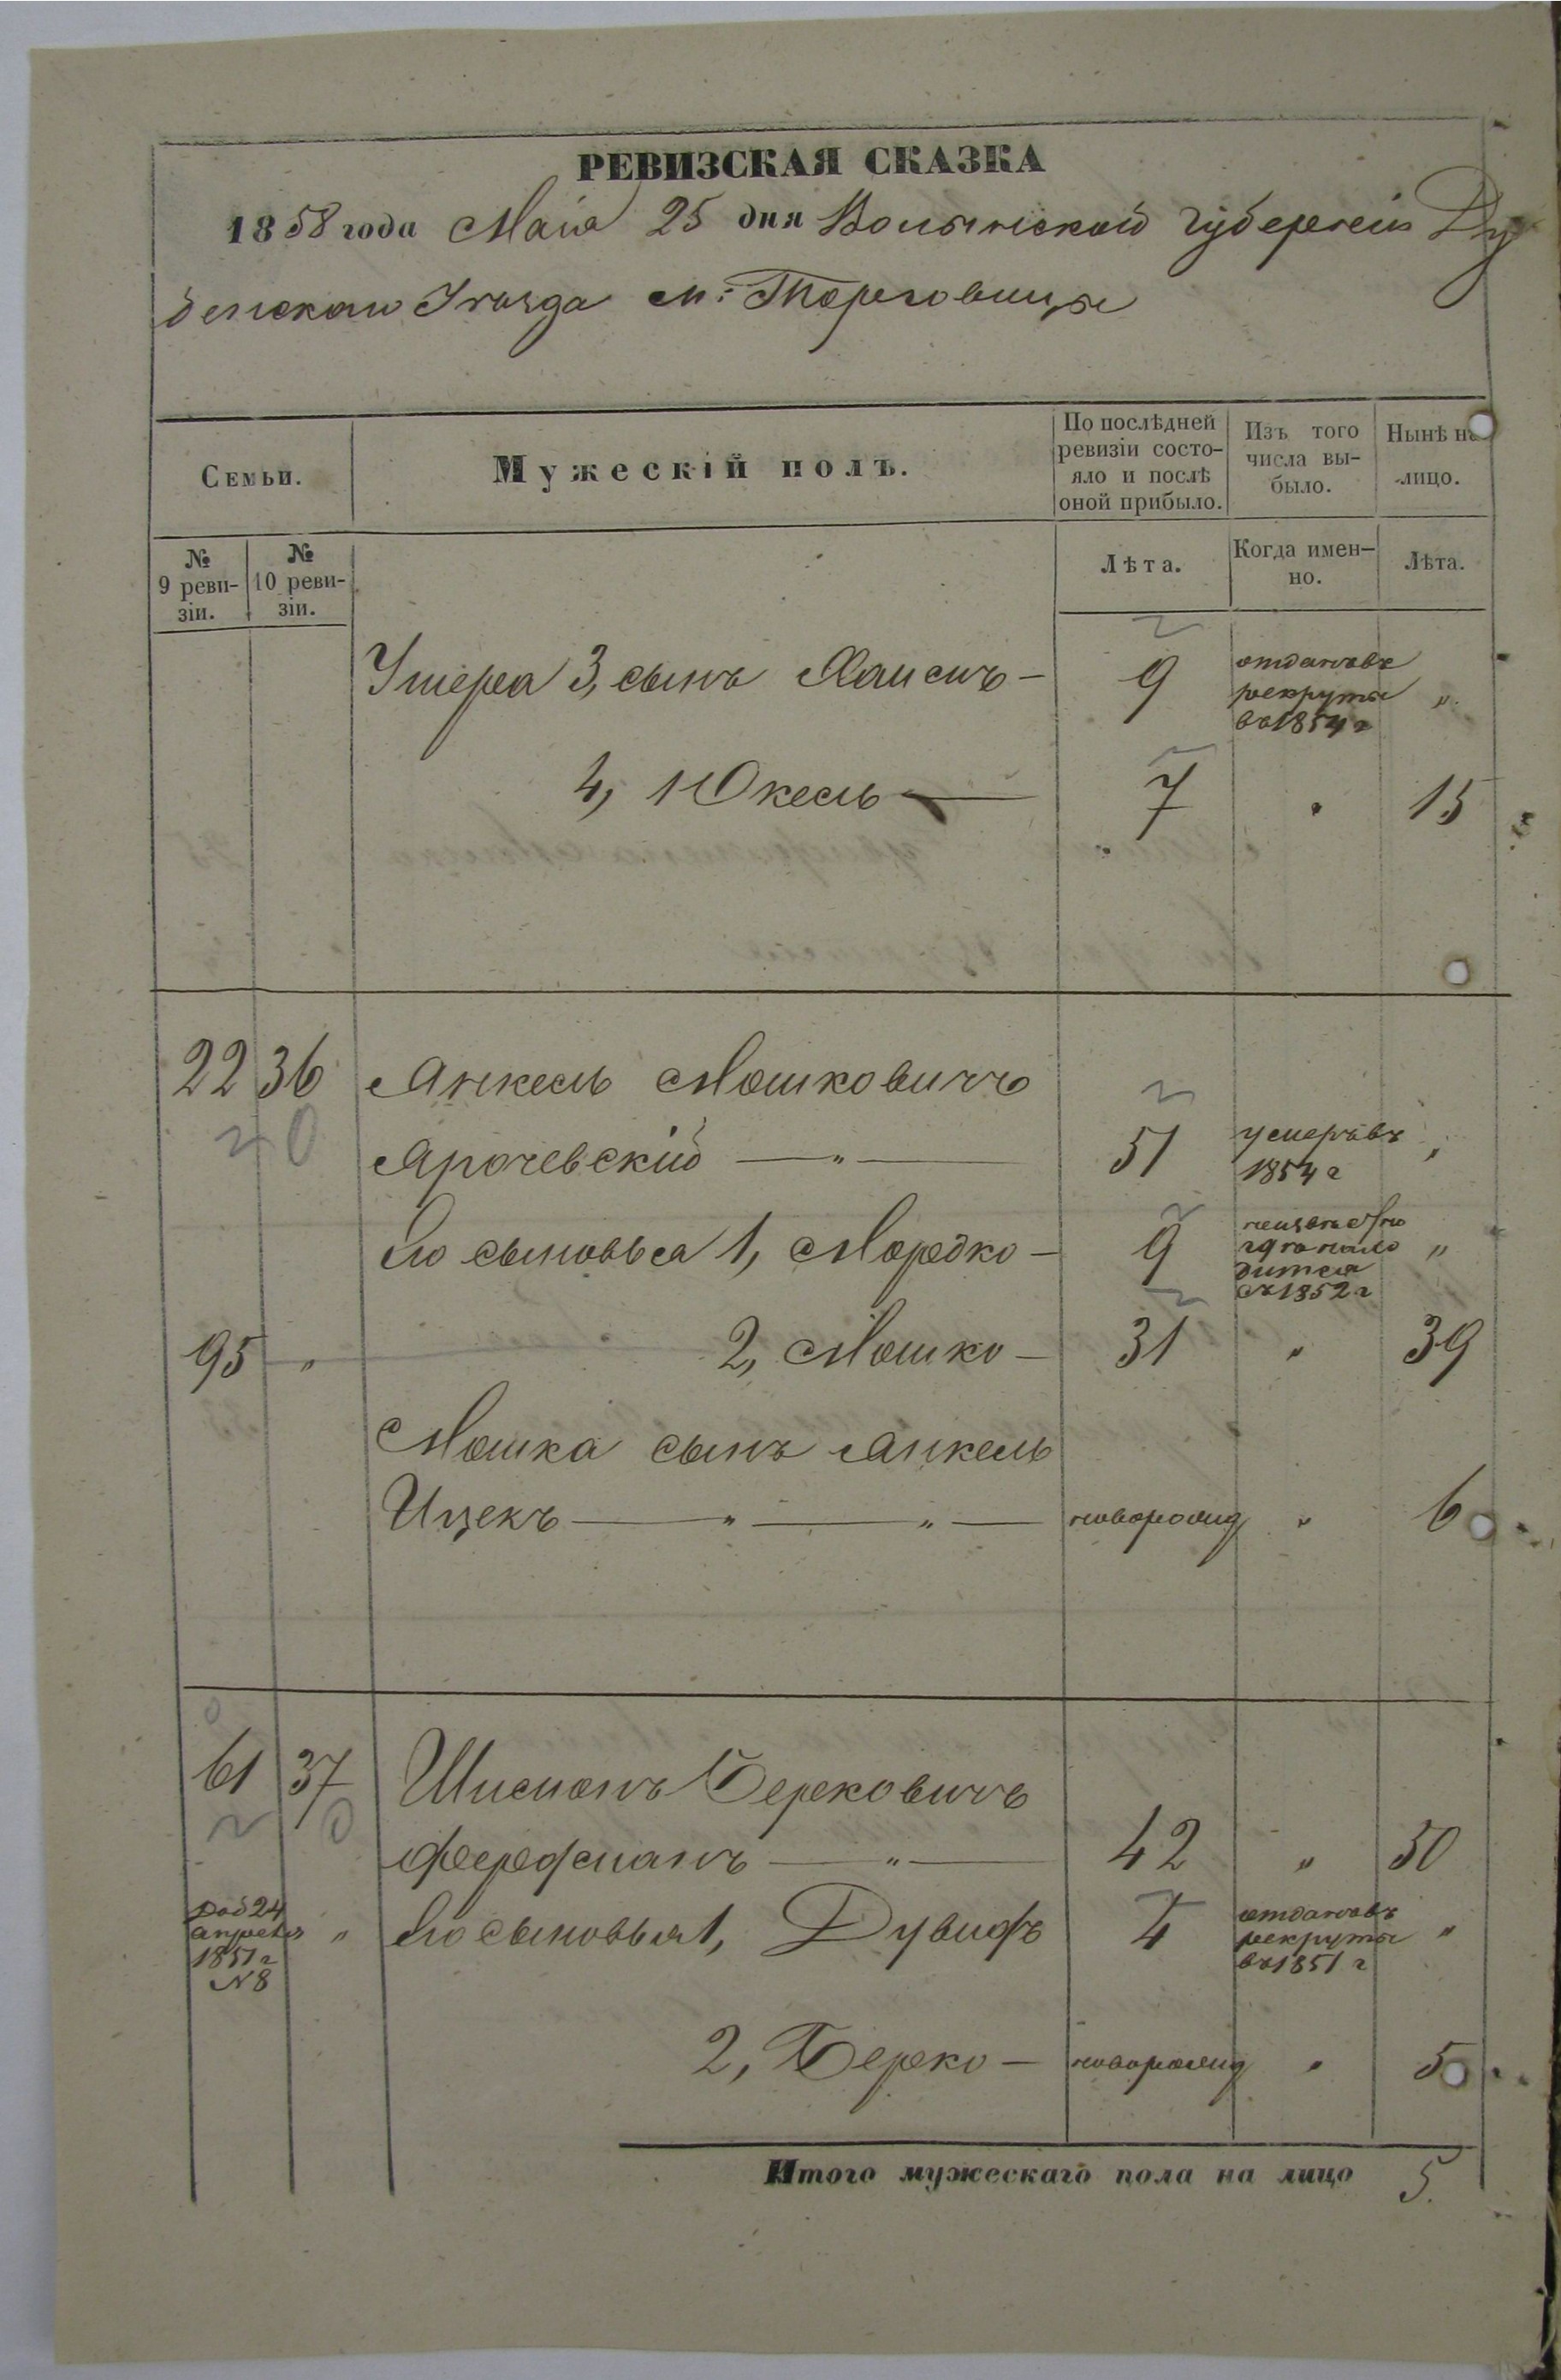 РЕВИЗСКАЯ СКАЗКА
1858 года Маія 25 дня Волынской Губерніи Ду
бенскаго Уѣзда м: Торговицы
Семьи.
Мужескій полъ.
По послѣдней ревизіи состо-
яло и послѣ
оной прибыло.
Изъ того
числа вы-
было.
Нынѣ на
лицо.
№
9 реви-
зіи.
№
10 реви-
зіи.
Лѣта.
Когда имен-
но.
Лѣта.
3, сынъ 9 отданъ въ
рекруты "
въ 1854 г
4, Юкель 7 " 15
22 36 Янкель Мошковичъ
Ярочевскій — " — 51 умеръ въ "
1854 г
Его сыновья 1, Мордко — 9 неизвѣстно
гдѣ нахо "
дится
съ 1852 г
95 " 2, Мошко — 31 " 39
Мошка сынъ Янкель
Ицекъ — " — " — новорожд " 6
61 37 Шлема Берковичъ
— " — 42 " 50
Доб 24
апреля
1851 г
№ 8
" Его сыновья 1, Дувидъ 4 отданъ въ
рекруты "
въ 1851 г
2, Берко — новорожд " 5
Итого мужескаго пола на лицо 5.